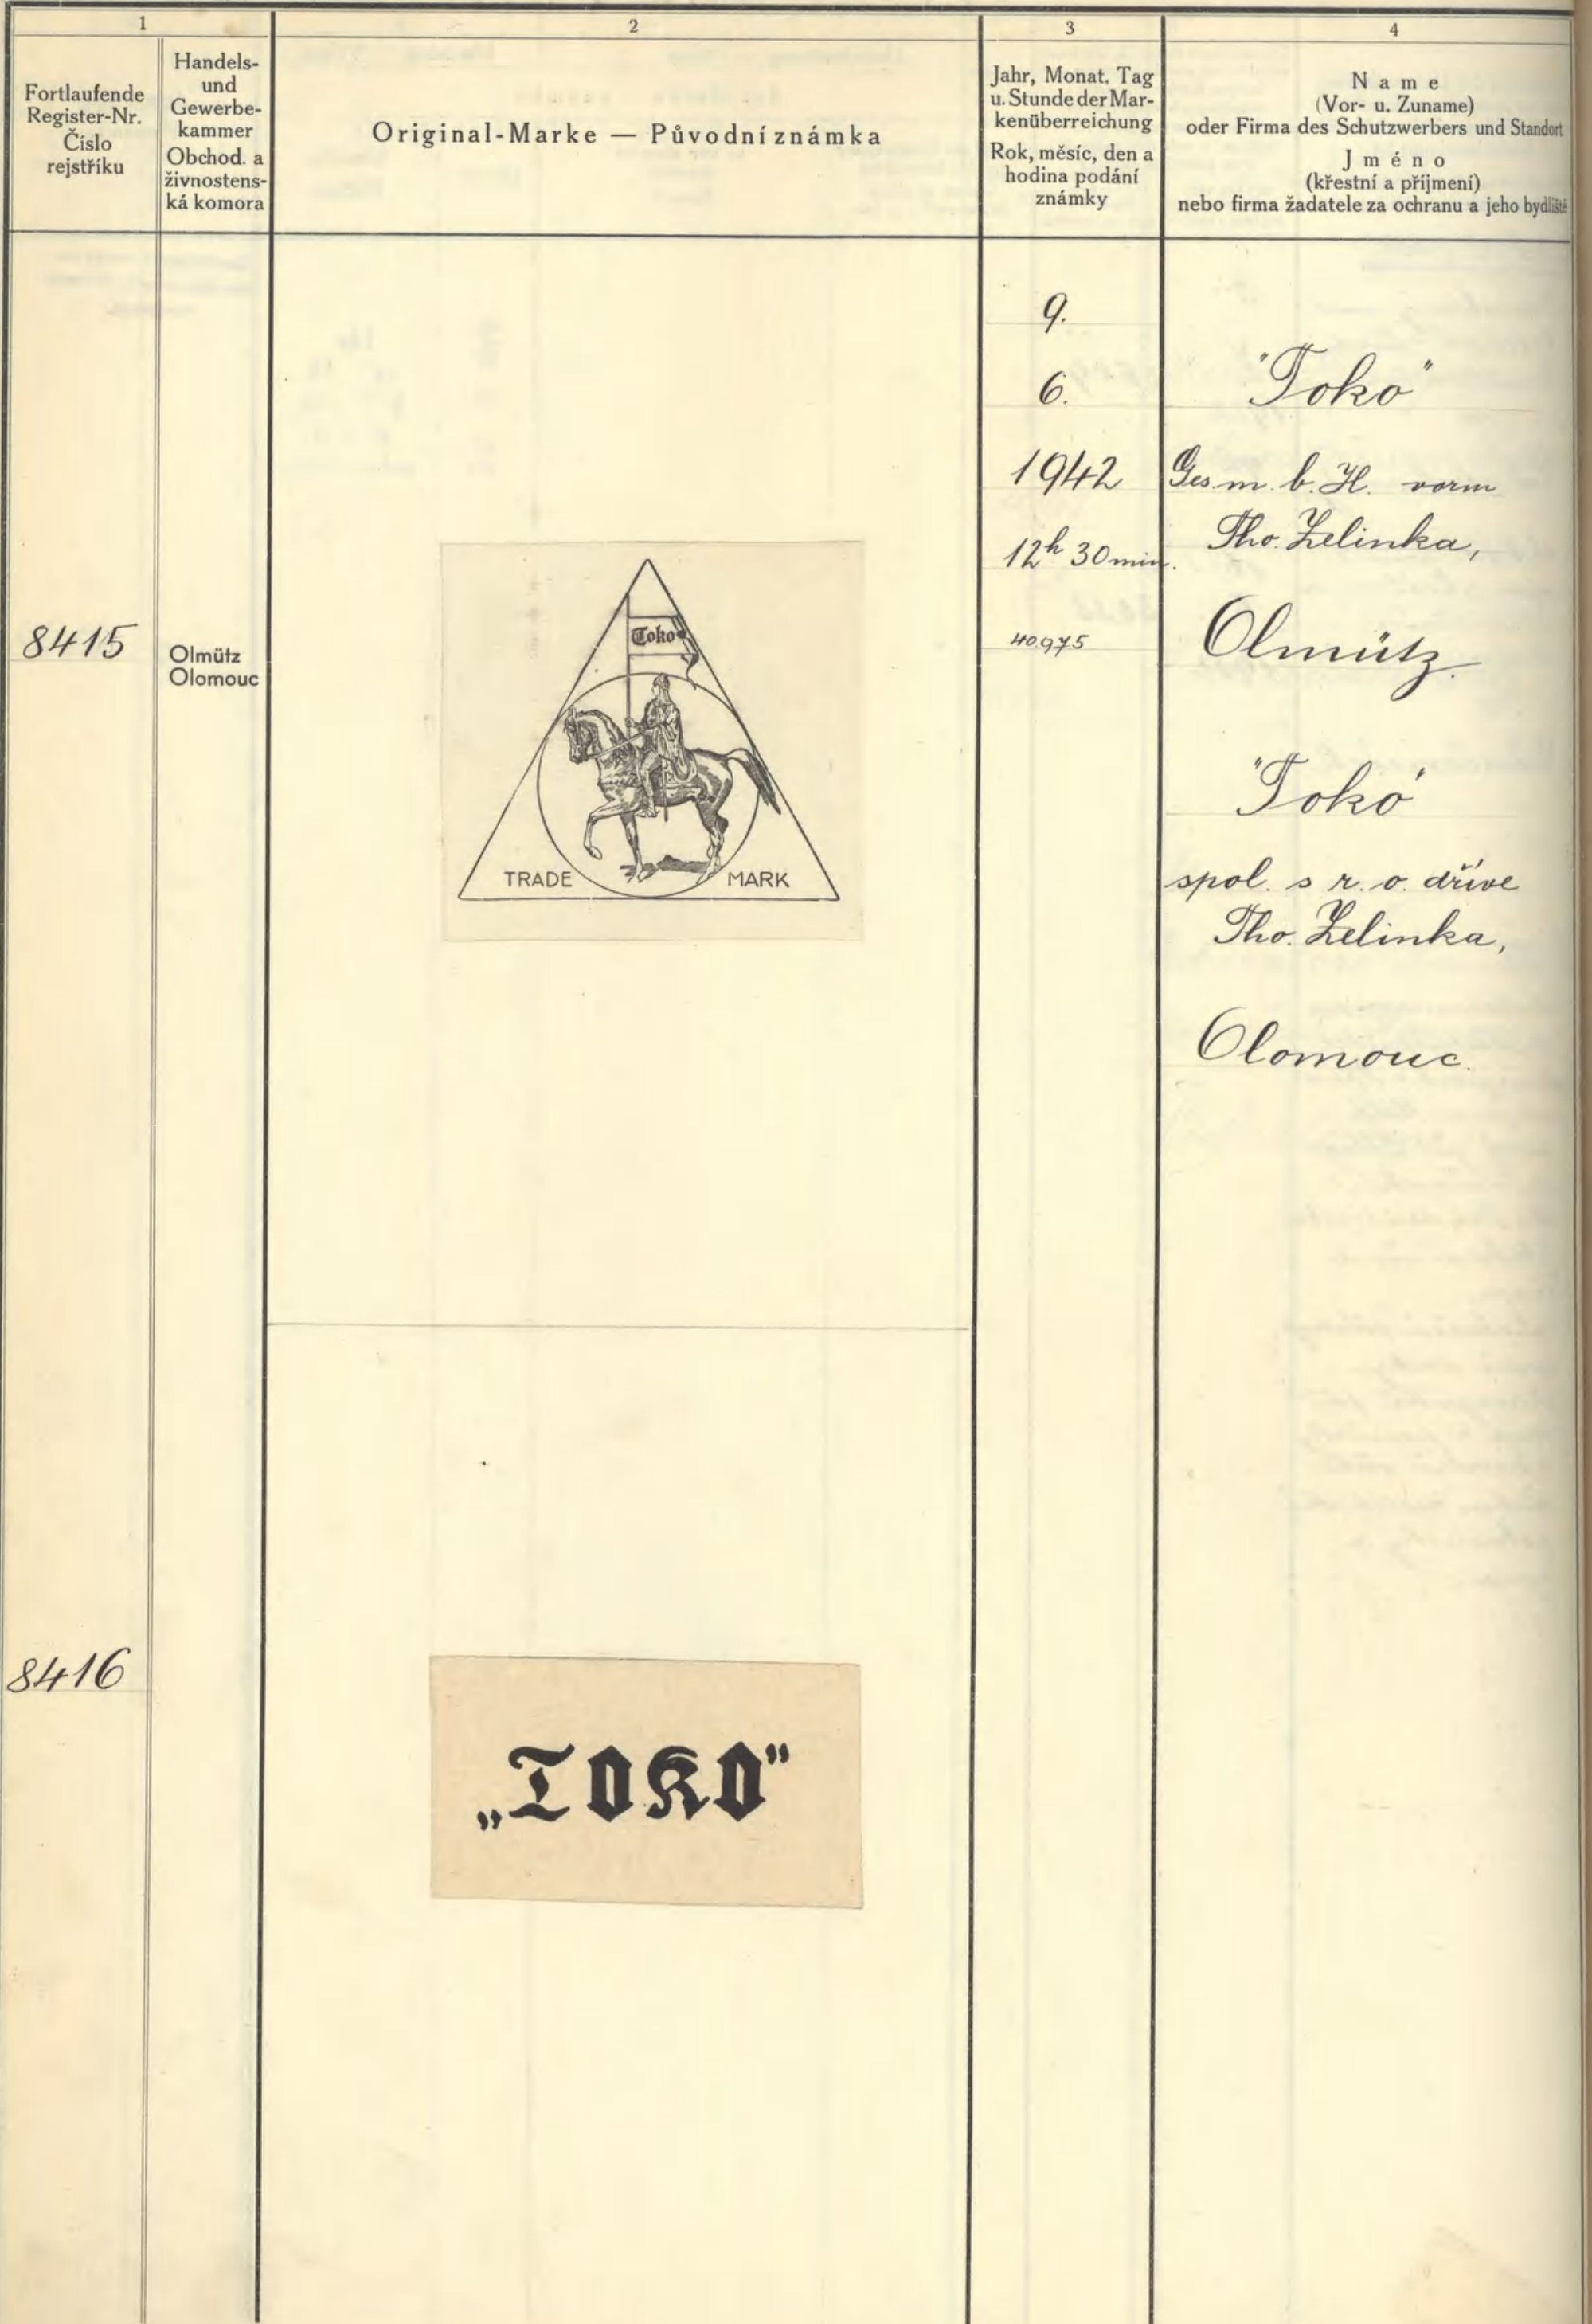 1
Fortlaufende
Register-Nr.
Číslo
rejstříku
Handels-
und
Gewerbe-
kammer
Obchod. a
živnostens-
ká komora
2
Original-Marke — Původní známka
3
Jahr, Monat, Tag
u. Stunde der Mar-
kenüberreichung
Rok, měsíc, den a
hodina podání
známky
4
Name
(Vor- u. Zuname)
oder Firma des Schutzwerbers und Standort
Jméno
(křestní a příjmení)
nebo firma žadatele za ochranu a jeho bydliště
8415
Olmütz
Olomouc
Toko
TRADE MARK
9.
6.
1942
12h 30 min.
40.975
"Toko"
Ges. m. b. H. vorm
Tho. Zelinka,
Olmütz.
"Toko"
spol. s r. o. dříve
Tho. Zelinka,
Olomouc.
8416
„TOKO"